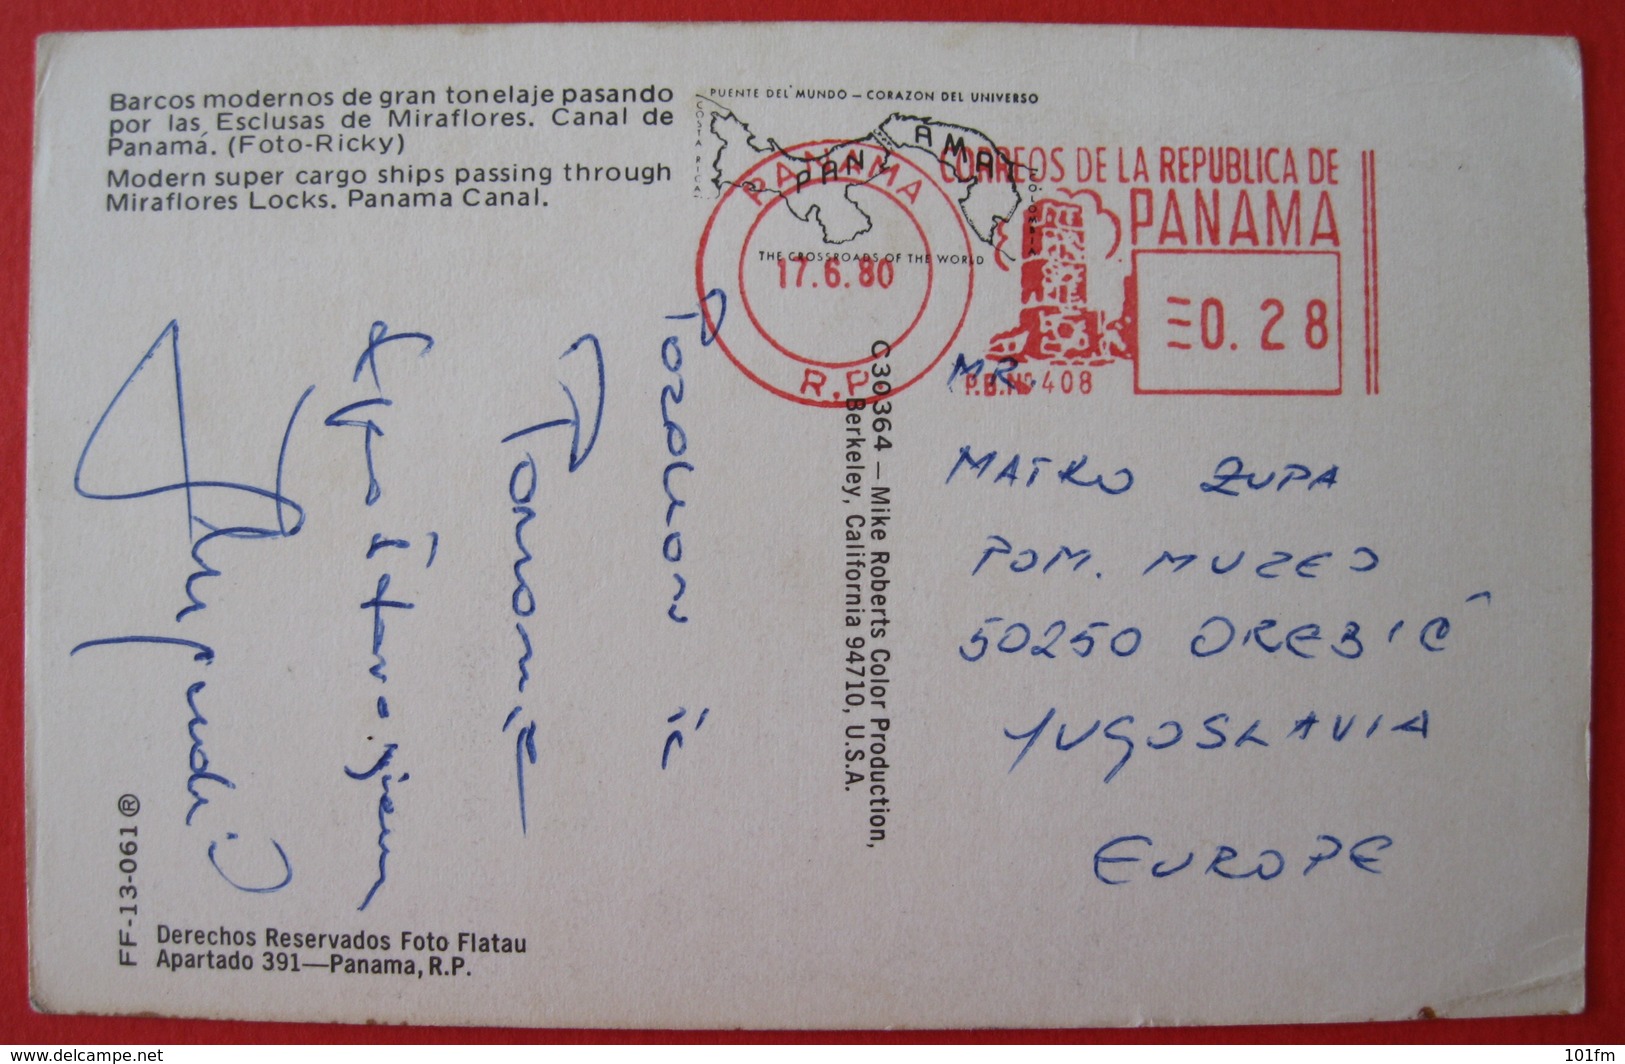 Barcos modernos de gran tonelaje pasando
por las Esclusas de Miraflores. Canal de
Panamá. (Foto-Ricky)
Modern super cargo ships passing through
Miraflores Locks. Panama Canal.
PUENTE DEL MUNDO – CORAZON DEL UNIVERSO
COSTA RICA
PANAMA
COLOMBIA
THE CROSSROADS OF THE WORLD
PANAMA
17.6.80
R.P.
CORREOS DE LA REPUBLICA DE
PANAMA
0.28
P.B.Nº 408
MR.
MATKO ZUPA
POM. MUZEJ
50250 OREBIĆ
YUGOSLAVIA
EUROPE
C30364 — Mike Roberts Color Production,
Berkeley, California 94710, U.S.A.
Pozdrav iz
Paname
FF-13-061 ®
Derechos Reservados Foto Flatau
Apartado 391—Panama, R.P.
101fm
www.delcampe.net